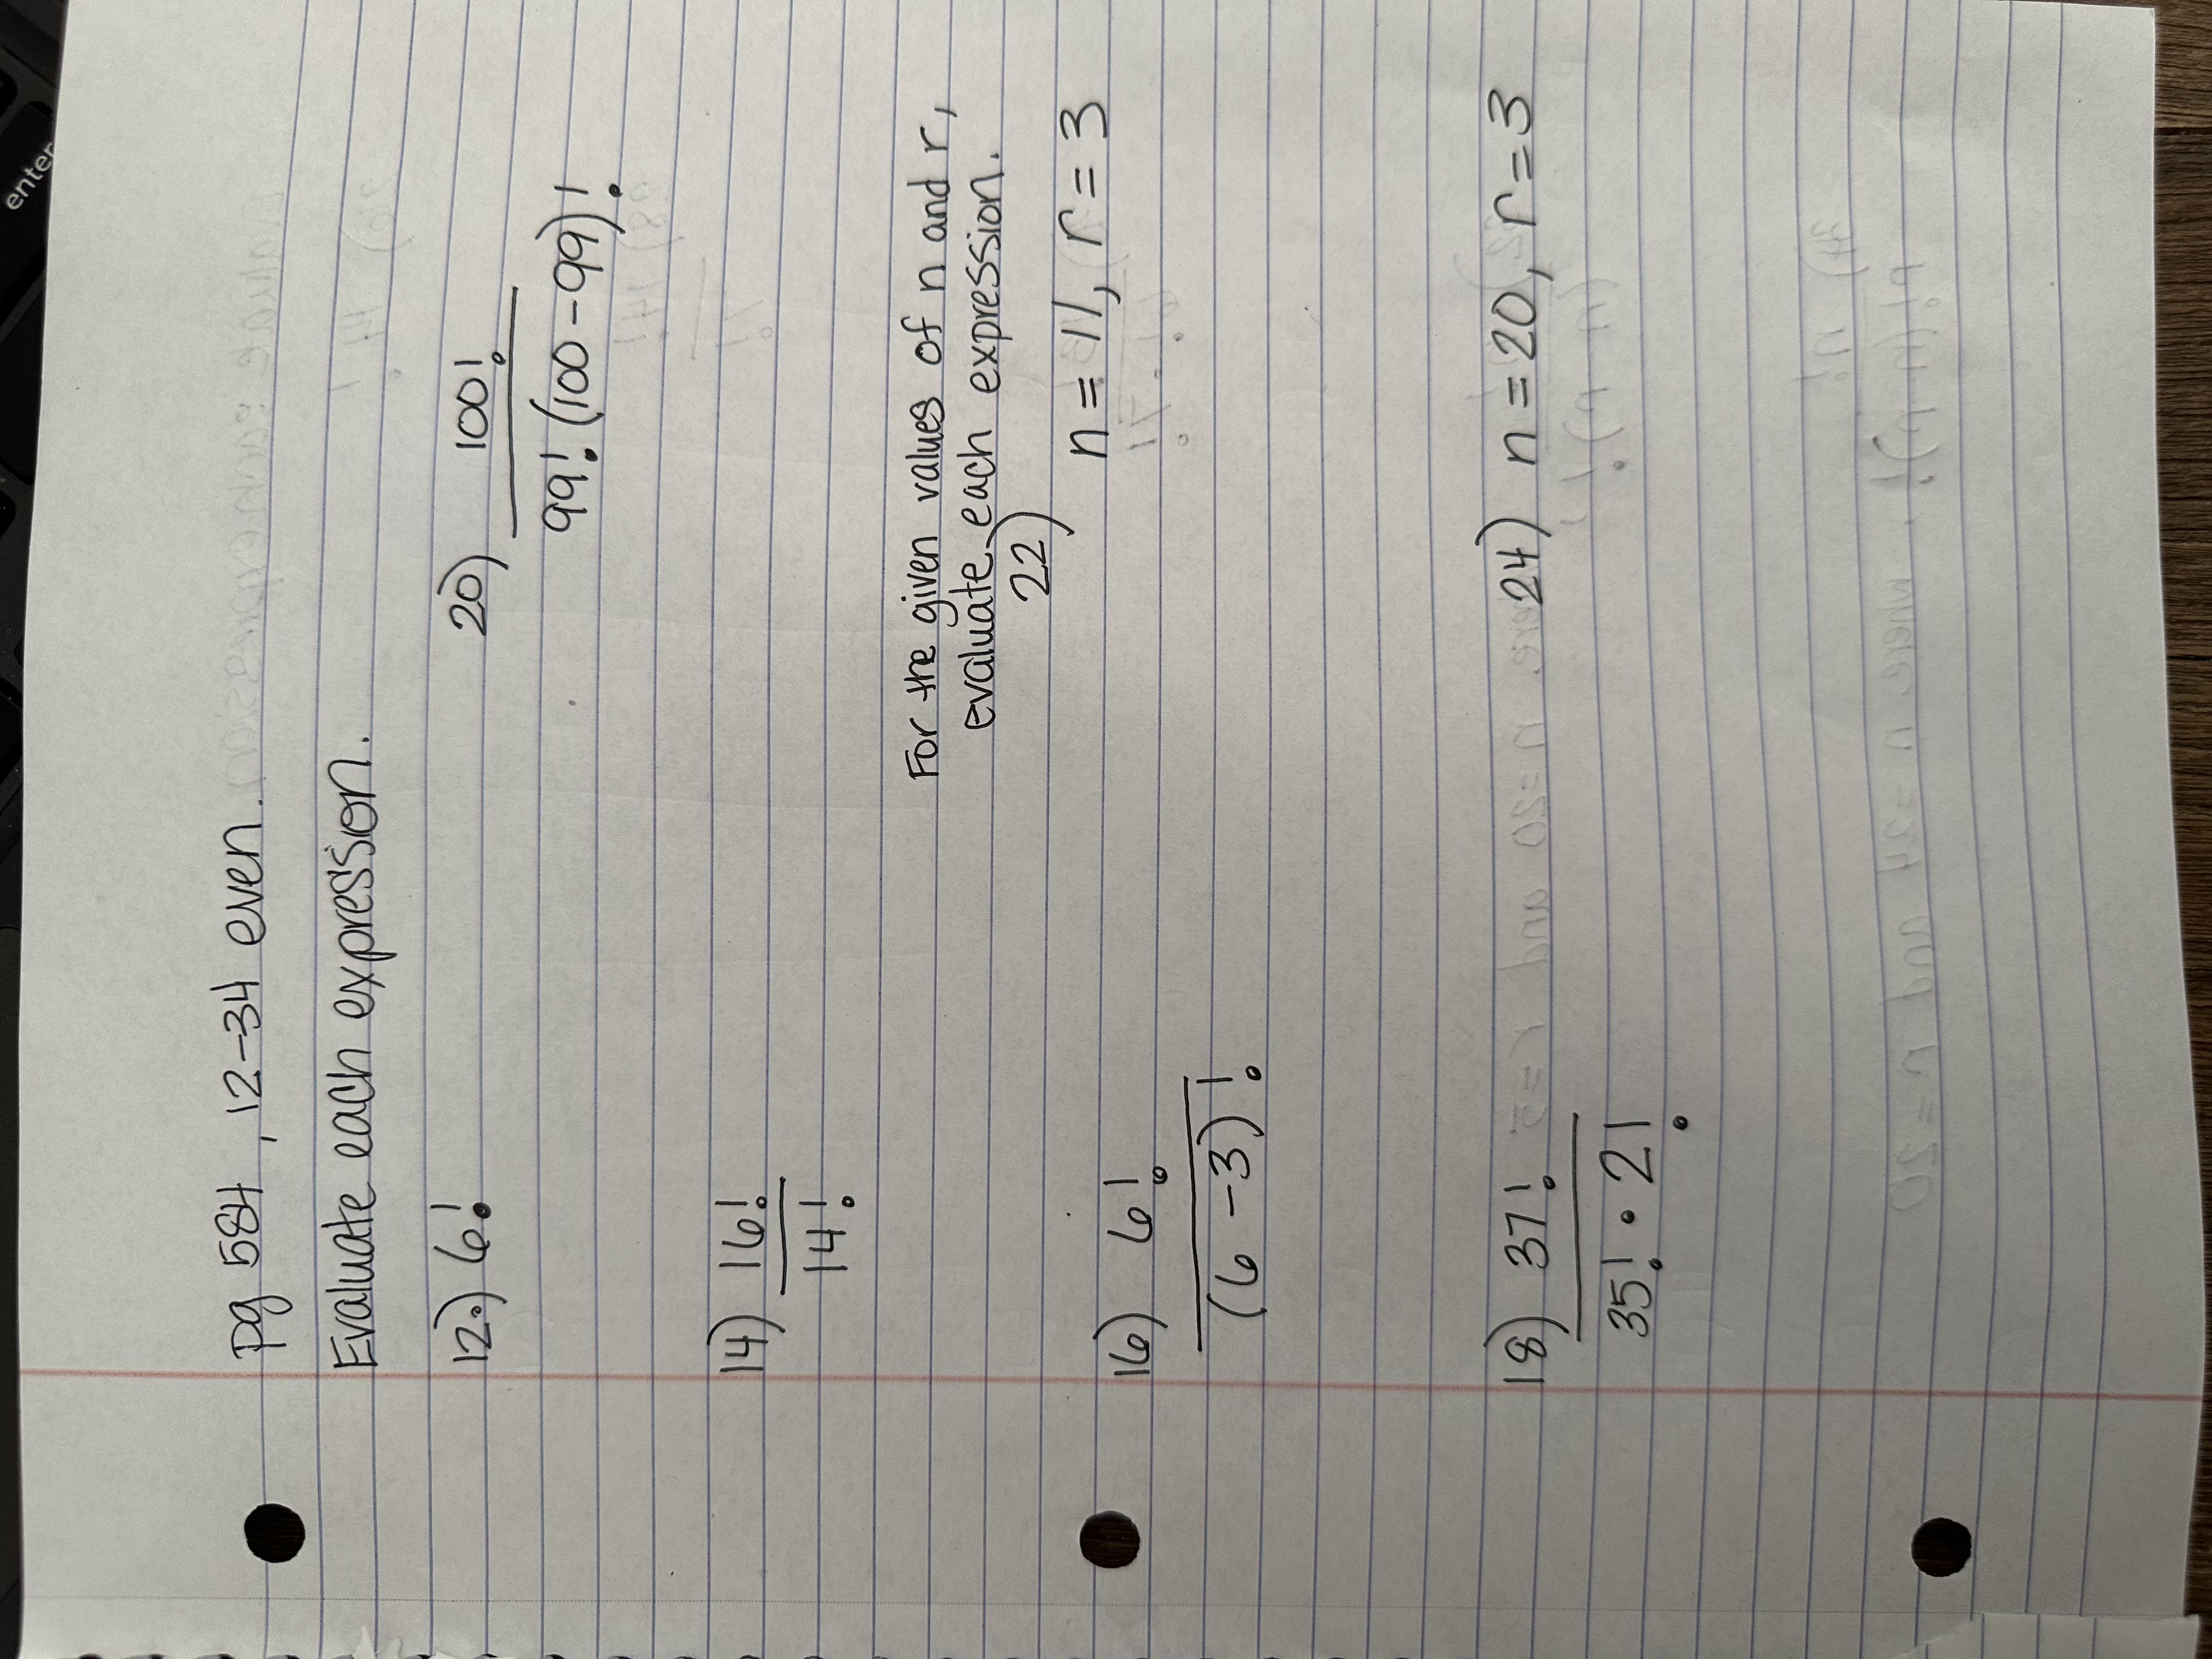 enter
pg 584, 12-34 even.
Evaluate each expression.
12.) 6!
14) 16!
14!
16) 6!
(6-3)!
18) 37!
35! • 2!
20) 100!
99! (100-99)!
For the given values of n and r,
evaluate each expression.
22)
n = 11, r = 3
24) n = 20, r = 3